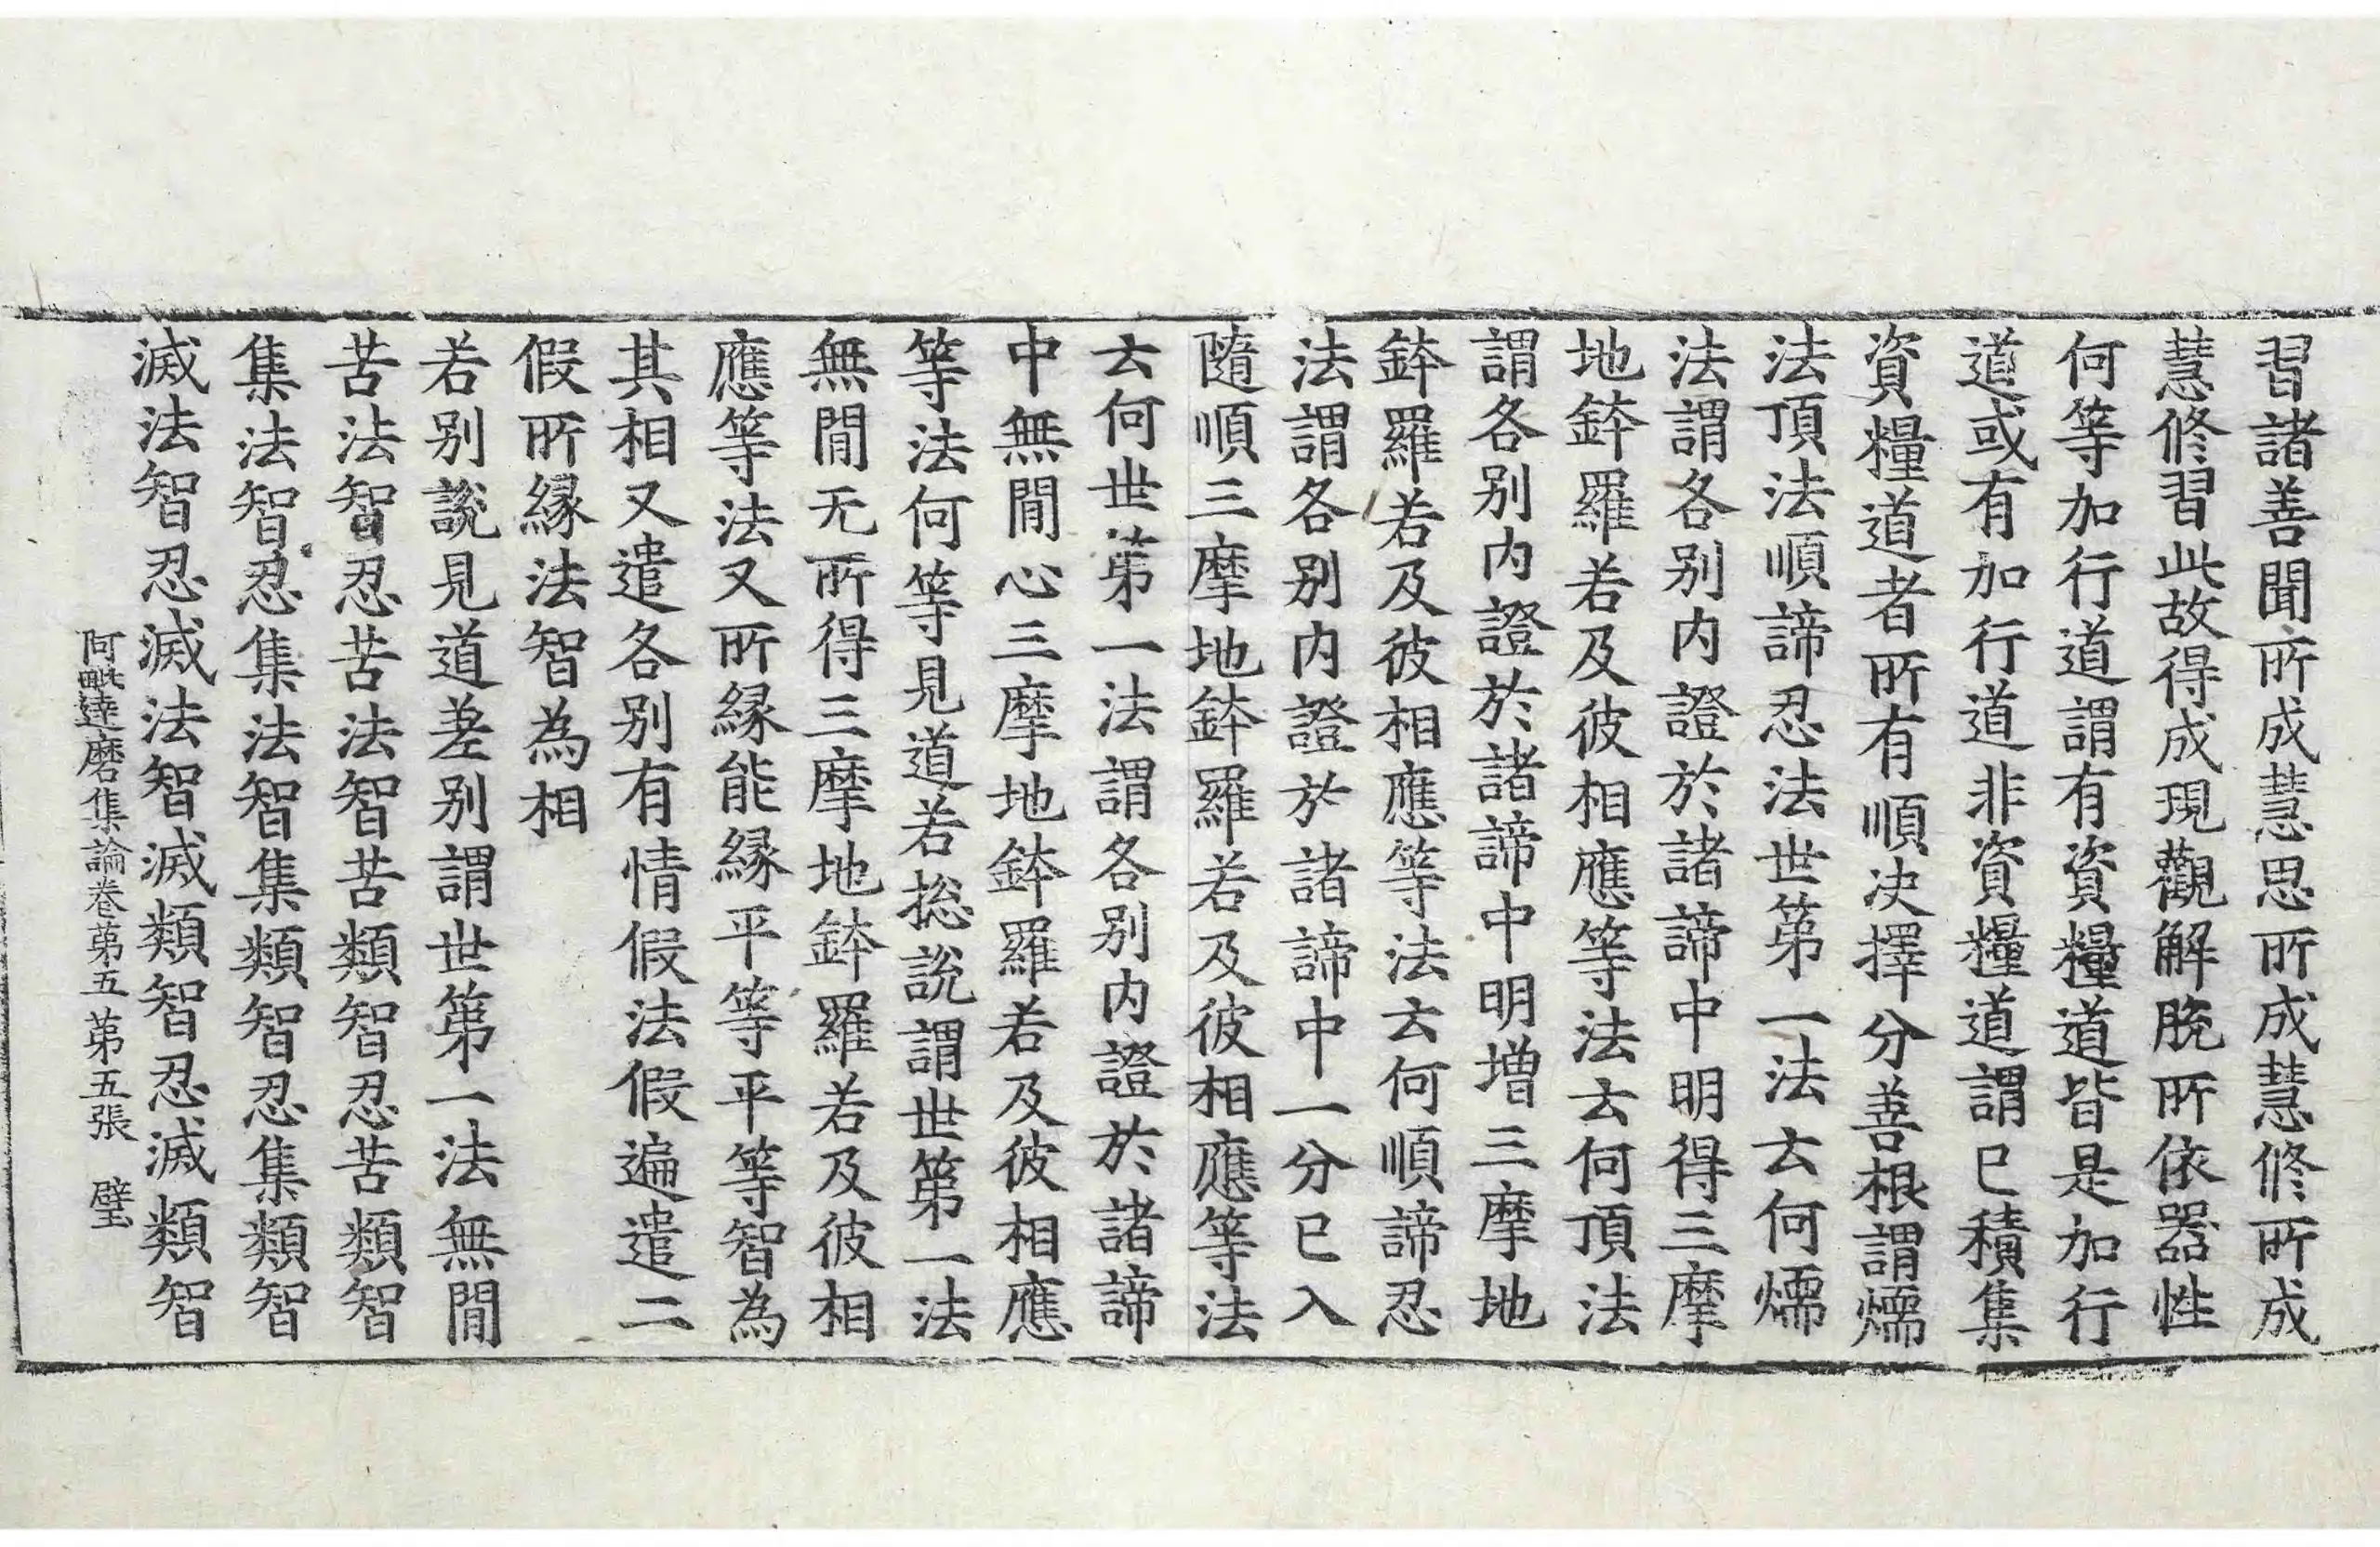 習諸善聞所成慧思所成慧修所成
慧修習此故得成現觀解脫所依器性
何等加行道謂有資糧道皆是加行
道或有加行道非資糧道謂已積集
資糧道者所有順決擇分善根謂煗
法頂法順諦忍法世第一法云何煗
法謂各別內證於諸諦中明得三摩
地鉢羅若及彼相應等法云何頂法
謂各別內證於諸諦中明增三摩地
鉢羅若及彼相應等法云何順諦忍
法謂各別內證於諸諦中一分已入
隨順三摩地鉢羅若及彼相應等法
云何世第一法謂各別內證於諸諦
中無間心三摩地鉢羅若及彼相應
等法何等見道若捴說謂世第一法
無間无所得三摩地鉢羅若及彼相
應等法又所緣能緣平等平等智為
其相又遣各別有情假法假遍遣二
假所緣法智為相
若別說見道差別謂世第一法無間
苦法智忍苦法智苦類智忍苦類智
集法智忍集法智集類智忍集類智
滅法智忍滅法智滅類智忍滅類智
阿毗達磨集論卷第五 第五張 璧